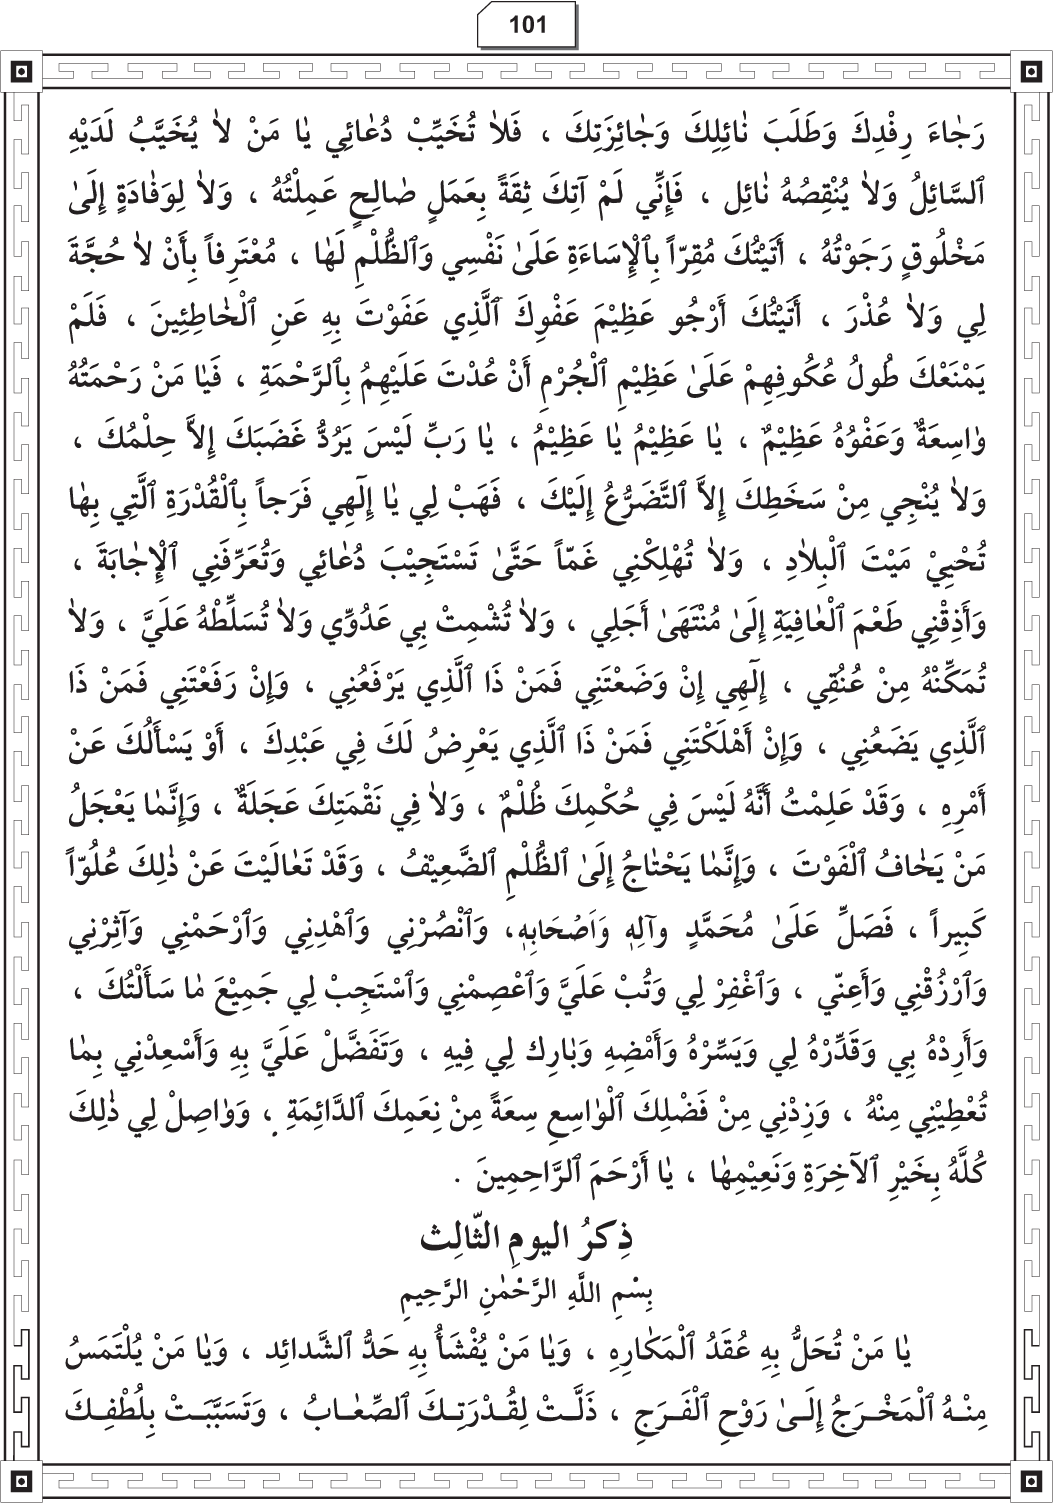 101
رَجٰاءَ رِفْدِكَ وَطَلَبَ نٰائِلِكَ وَجٰائِزَتِكَ ، فَلاٰ تُخَيِّبْ دُعٰائِي يٰا مَنْ لاٰ يُخَيَّبُ لَدَيْهِ
ٱلسَّائِلُ وَلاٰ يُنْقِصُهُ نٰائِل ، فَإِنِّي لَمْ آتِكَ ثِقَةً بِعَمَلٍ صٰالِحٍ عَمِلْتُهُ ، وَلاٰ لِوَفٰادَةٍ إِلَىٰ
مَخْلُوقٍ رَجَوْتُهُ ، أَتَيْتُكَ مُقِرّاً بِٱلْإِسَاءَةِ عَلَىٰ نَفْسِي وَٱلظُّلْمِ لَهٰا ، مُعْتَرِفاً بِأَنْ لاٰ حُجَّةَ
لِي وَلاٰ عُذْرَ ، أَتَيْتُكَ أَرْجُو عَظِيْمَ عَفْوِكَ ٱلَّذِي عَفَوْتَ بِهِ عَنِ ٱلْخٰاطِئِينَ ، فَلَمْ
يَمْنَعْكَ طُولُ عُكُوفِهِمْ عَلَىٰ عَظِيْمِ ٱلْجُرْمِ أَنْ عُدْتَ عَلَيْهِمُ بِٱلرَّحْمَةِ ، فَيٰا مَنْ رَحْمَتُهُ
وٰاسِعَةٌ وَعَفْوُهُ عَظِيْمٌ ، يٰا عَظِيْمُ يٰا عَظِيْمُ ، يٰا رَبِّ لَيْسَ يَرُدُّ غَضَبَكَ إِلاَّ حِلْمُكَ ،
وَلاٰ يُنْجِي مِنْ سَخَطِكَ إِلاَّ ٱلتَّضَرُّعُ إِلَيْكَ ، فَهَبْ لِي يٰا إِلٓهِي فَرَجاً بِٱلْقُدْرَةِ ٱلَّتِي بِهٰا
تُحْيِيْ مَيْتَ ٱلْبِلاٰدِ ، وَلاٰ تُهْلِكْنِي غَمّاً حَتَّىٰ تَسْتَجِيْبَ دُعٰائِي وَتُعَرِّفَنِي ٱلْإِجٰابَةَ ،
وَأَذِقْنِي طَعْمَ ٱلْعٰافِيَةِ إِلَىٰ مُنْتَهَىٰ أَجَلِي ، وَلاٰ تُشْمِتْ بِي عَدُوِّي وَلاٰ تُسَلِّطْهُ عَلَيَّ ، وَلاٰ
تُمَكِّنْهُ مِنْ عُنُقِي ، إِلٓهِي إِنْ وَضَعْتَنِي فَمَنْ ذَا ٱلَّذِي يَرْفَعُنِي ، وَإِنْ رَفَعْتَنِي فَمَنْ ذَا
ٱلَّذِي يَضَعُنِي ، وَإِنْ أَهْلَكْتَنِي فَمَنْ ذَا ٱلَّذِي يَعْرِضُ لَكَ فِي عَبْدِكَ ، أَوْ يَسْأَلُكَ عَنْ
أَمْرِهِ ، وَقَدْ عَلِمْتُ أَنَّهُ لَيْسَ فِي حُكْمِكَ ظُلْمٌ ، وَلاٰ فِي نَقْمَتِكَ عَجَلَةٌ ، وَإِنَّمٰا يَعْجَلُ
مَنْ يَخٰافُ ٱلْفَوْتَ ، وَإِنَّمٰا يَحْتٰاجُ إِلَىٰ ٱلظُّلْمِ ٱلضَّعِيْفُ ، وَقَدْ تَعٰالَيْتَ عَنْ ذٰلِكَ عُلُوّاً
كَبِيراً ، فَصَلِّ عَلَىٰ مُحَمَّدٍ وآلِهٖ وَاَصْحَابِهٖ، وَٱنْصُرْنِي وَٱهْدِنِي وَٱرْحَمْنِي وَآثِرْنِي
وَٱرْزُقْنِي وَأَعِنّي ، وَٱغْفِرْ لِي وَتُبْ عَلَيَّ وَٱعْصِمْنِي وَٱسْتَجِبْ لِي جَمِيْعَ مٰا سَأَلْتُكَ ،
وَأَرِدْهُ بِي وَقَدِّرْهُ لِي وَيَسِّرْهُ وَأَمْضِهِ وَبٰارِك لِي فِيهِ ، وَتَفَضَّلْ عَلَيَّ بِهِ وَأَسْعِدْنِي بِمٰا
تُعْطِيْنِي مِنْهُ ، وَزِدْنِي مِنْ فَضْلِكَ ٱلْوٰاسِعِ سِعَةً مِنْ نِعَمِكَ ٱلدَّائِمَةِ ، وَوٰاصِلْ لِي ذٰلِكَ
كُلَّهُ بِخَيْرِ ٱلآخِرَةِ وَنَعِيْمِهٰا ، يٰا أَرْحَمَ ٱلرَّاحِمِينَ .
ذِكرُ اليومِ الثّالِث
بِسْمِ اللَّهِ الرَّحْمٰنِ الرَّحِيمِ
يٰا مَنْ تُحَلُّ بِهِ عُقَدُ ٱلْمَكٰارِهِ ، وَيٰا مَنْ يُفْشَأُ بِهِ حَدُّ ٱلشَّدائِد ، وَيٰا مَنْ يُلْتَمَسُ
مِنْـهُ ٱلْمَخْـرَجُ إِلَـىٰ رَوْحِ ٱلْفَـرَجِ ، ذَلَّـتْ لِقُـدْرَتِـكَ ٱلصِّعٰـابُ ، وَتَسَبَّبَـتْ بِلُطْفِـكَ